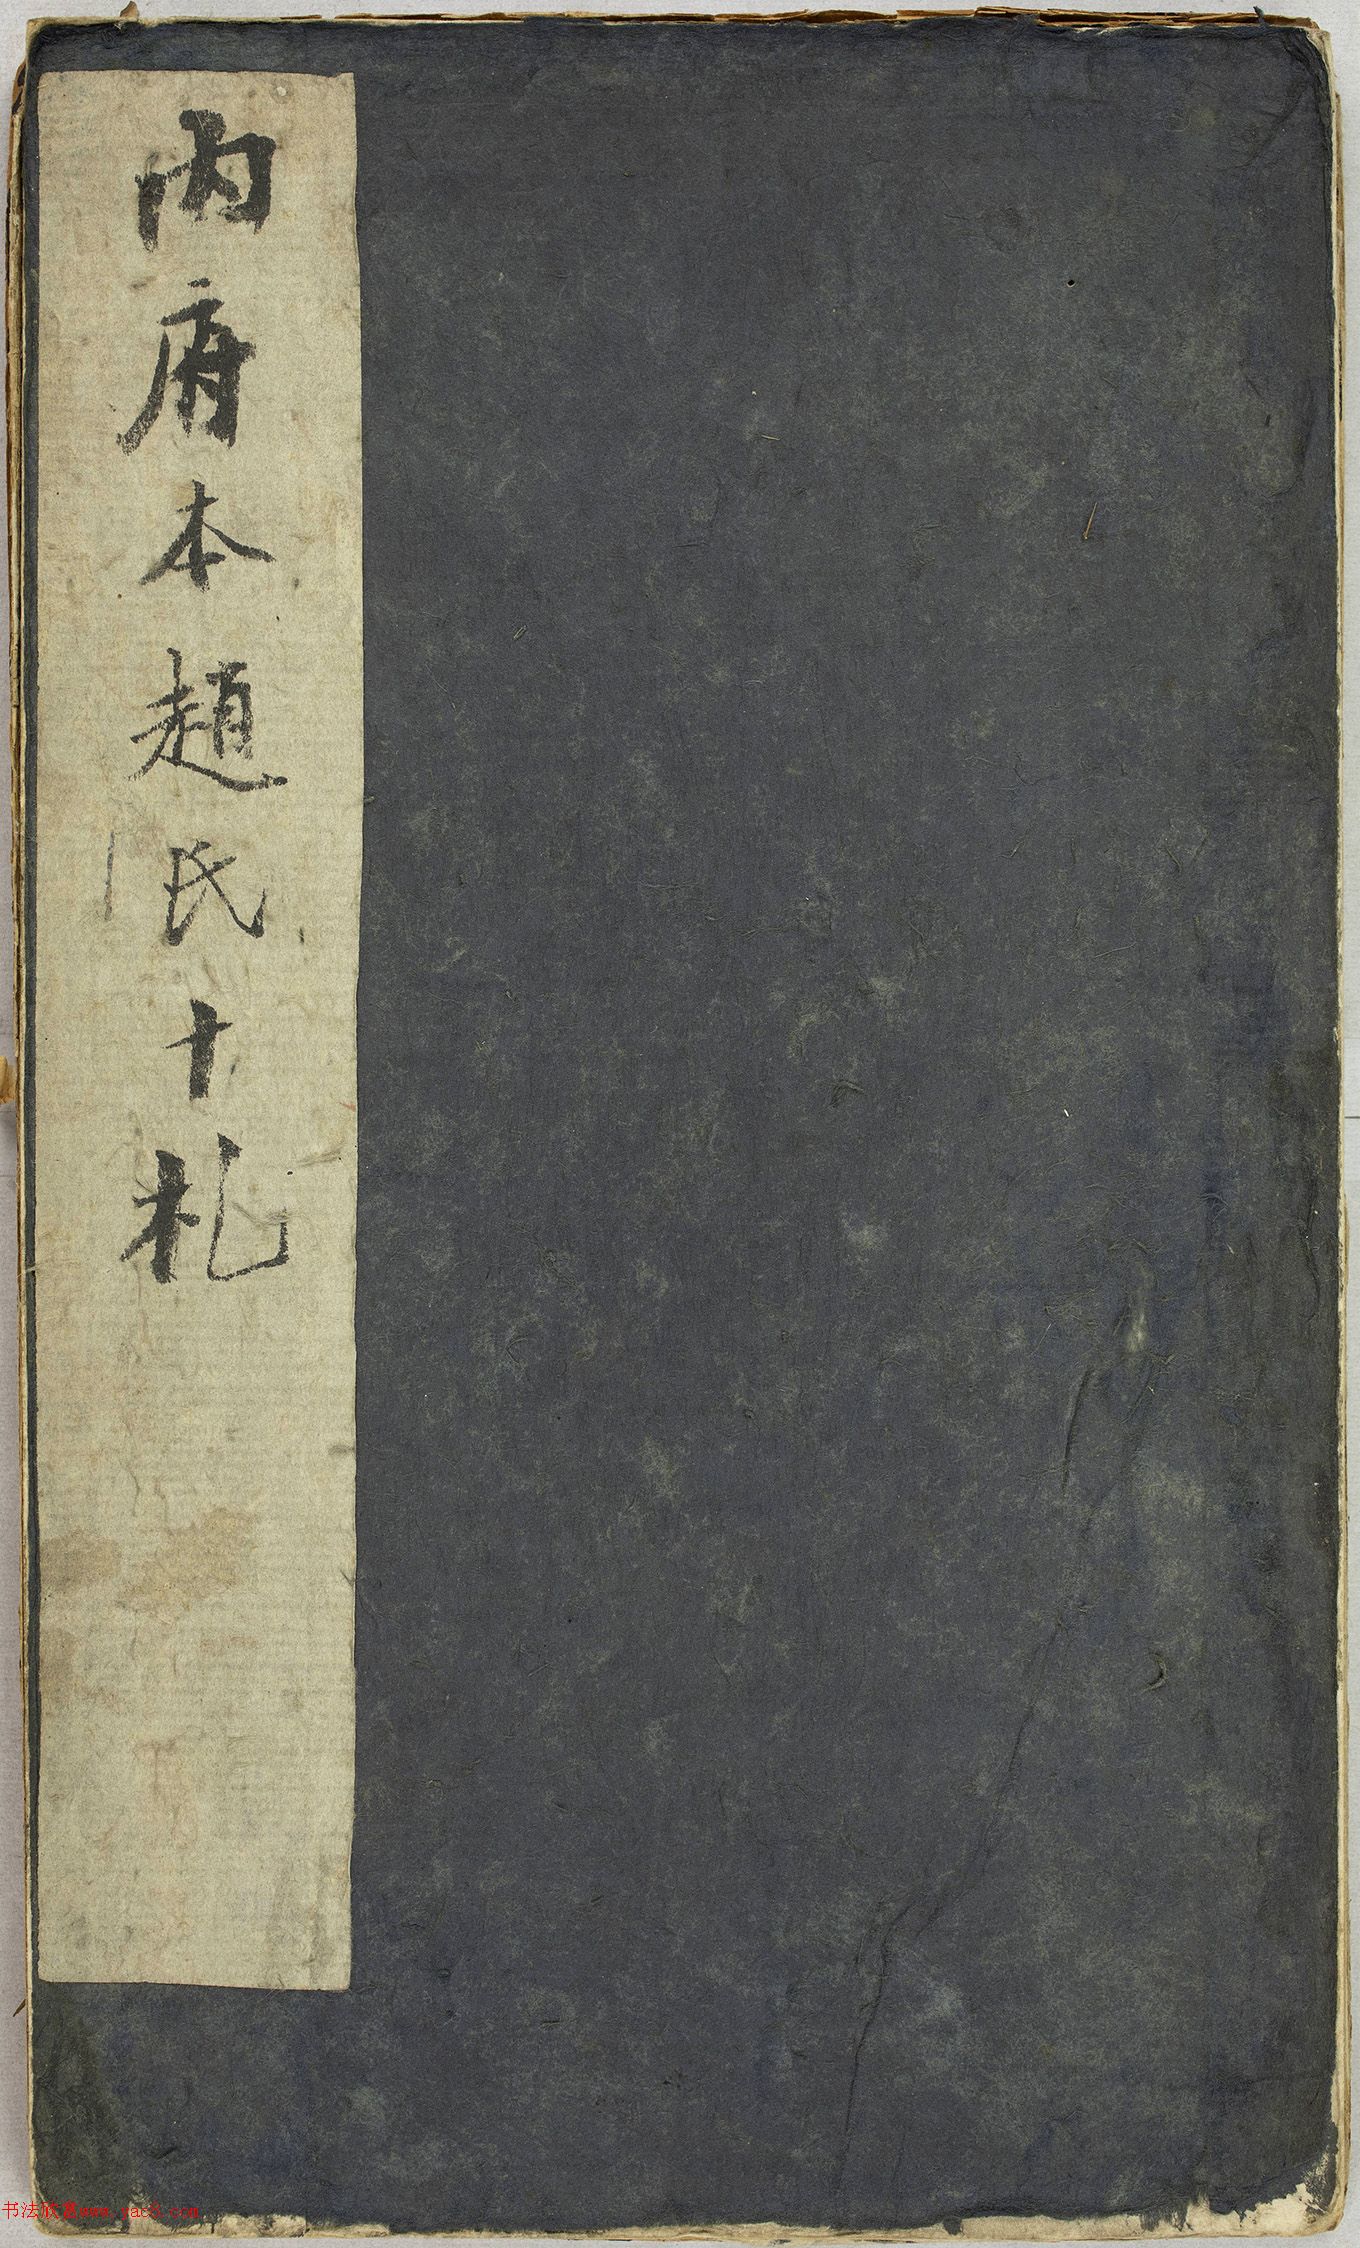 內府本趙氏十札
书法欣赏www.yac8.com